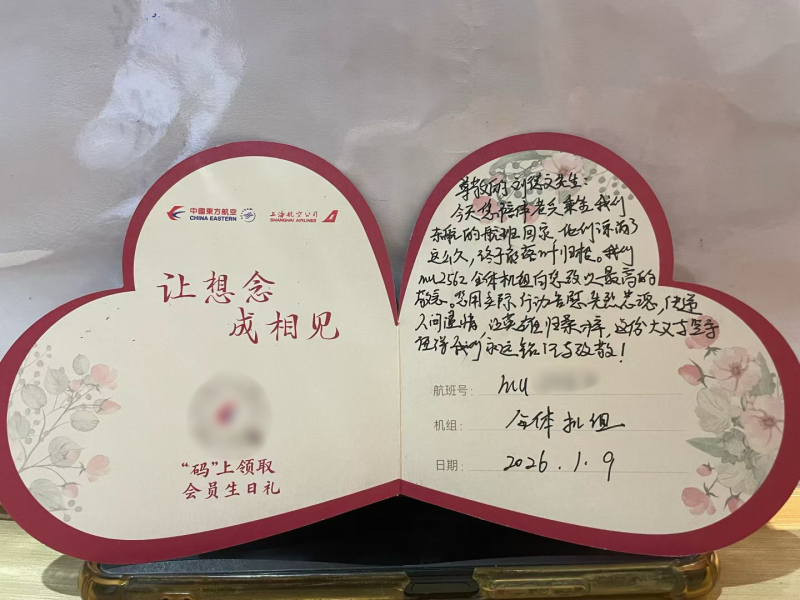 中國東方航空
CHINA EASTERN
上海航空公司
SHANGHAI AIRLINES
让想念
成相见
“码”上领取
会员生日礼
尊敬的刘德文先生:
今天您陪伴老兵乘坐我们
东航的航班回家,他们漂泊了
这么久,终于能落叶归根。我们
mu2562全体机组向您致以最高的
敬意。您用实际行动告慰先烈忠魂,传递
人间温情,让英雄归桑梓,这份大义与坚守
值得我们永远铭记与致敬!
航班号: mu
机组: 全体机组
日期: 2026.1.9